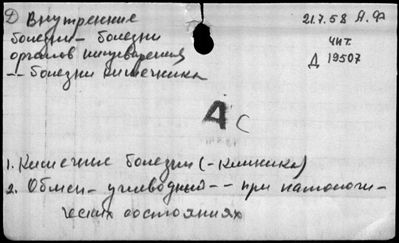 Д Внутренние 21.7.58 А.Ф
болезни – болезни чит.
органов пищеварения Д 19507
-- болезни кишечника
А с
1. Кишечные болезни (-клиника)
2. Обмен – углеводный -- при патологи-
ческих состояниях